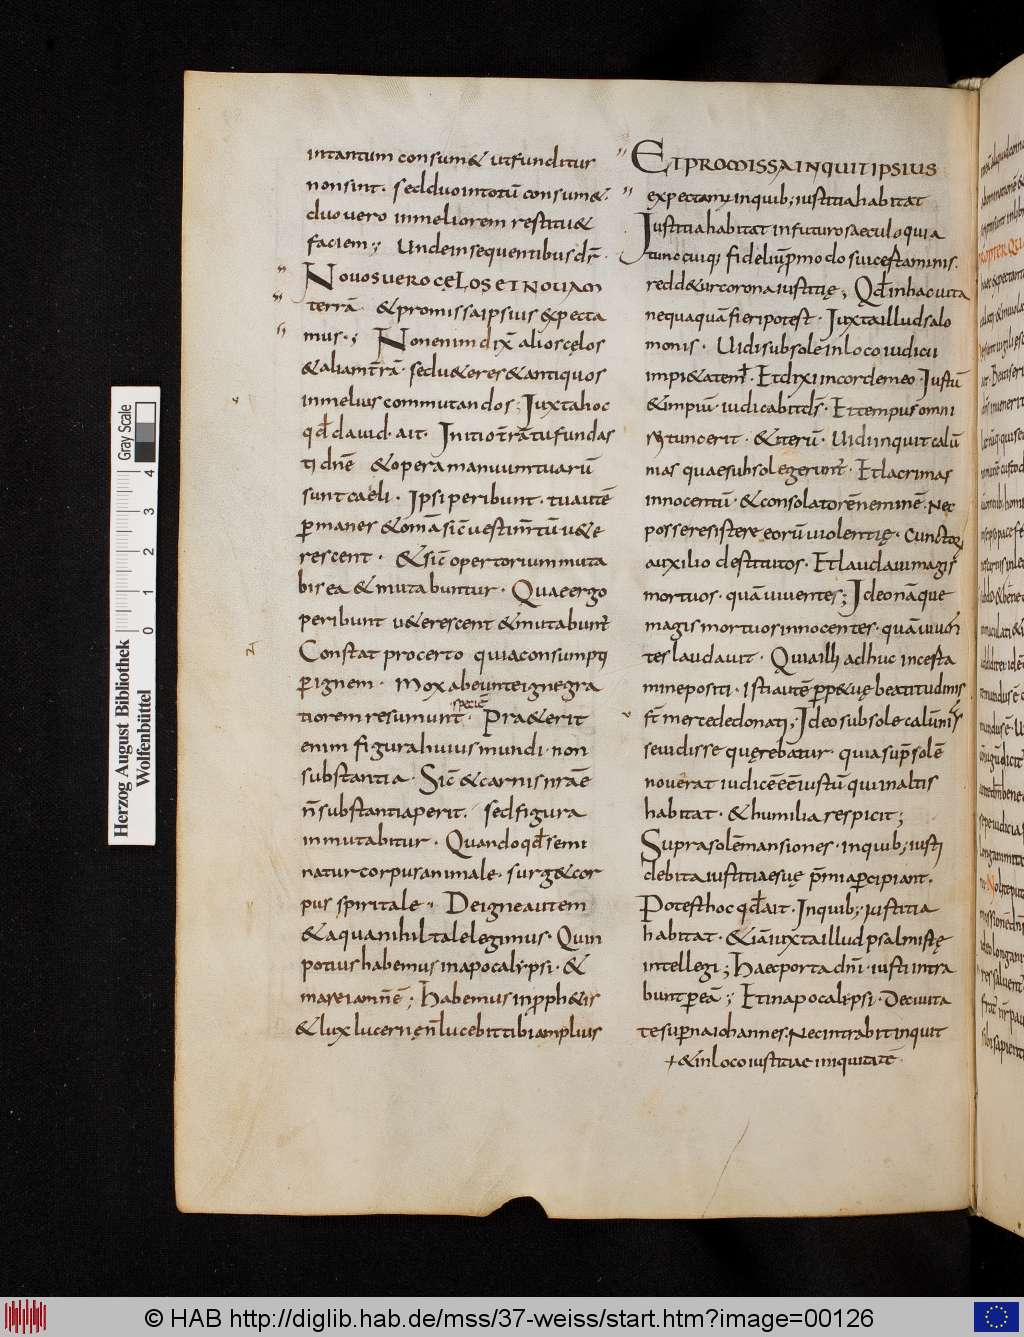 intantum consum& utfunditur
non sint· sed duo in totū consum&·
duo vero in meliorem restitu&
faciem; Unde in sequentibus dr̄·
Novos vero cęlos et novam
terrā· & promissa ipsius expecta
mus·; Non enim dix̄ alios cęlos
& aliam t̄rā· sed u&eres & antiquos
in melius commutandos; Juxta hoc
qd̄ david· ait· Initio t̄rā tu fundas
ti dn̄e & opera manuum tuarū
sunt caeli· Ipsi peribunt· tu autē
ꝑmanes & om̄a sic̄ vestim̄tū u&e
rescent· & sic̄ opertorium muta
bis ea & mutabuntur· Quae ergo
peribunt u&erescent & mutabunt̄
Constat pro certo quia consumpti
ꝑ ignem· mox abeunte igne gra
tiorem resumunt· speciē Pra&erit
enim figura huius mundi· non
substantia· Sic̄ & carnis nr̄ae
n̄ substantia perit· sed figura
inmutabitur· Quando qd̄ semi
natur corpus animale· surg& cor
pus spiritale· De igne autem
& aqua nihil tale legimus· Quin
potius habemus in apocalypsi· &
mare iam n̄ ē; Habemus in proph&is
& lux lucernę n̄ lucebit tibi amplius
Et promissa inquit ipsius
expectamus inquib; iustitia habitat
Justitia habitat in futuro saeculo quia
tunc cuiq; fidelium pro modo sui certaminis·
redd&ur corona iustitię; Qd̄ in hac vita
nequaquā fieri potest· Juxta illud salo
monis· Uidi sub sole in loco iudicii
impi&atem· Et dixi in corde meo· Justū
& impiū· iudicabit ds̄· Et tempus omni
rei tunc erit· & iterū· Uidi inquit calū
nias quae sub sole gerunt̄· Et lacrimas
innocentū· & consolatorē neminē· nec
posse resistere eorū violentię· cunctorum
auxilio destitutos· Et laudavi magis
mortuos· quā viventes; Ideo nāque
magis mortuos innocentes· quā viven
tes laudavit· Quia illi adhuc in certa
mine positi· isti autē ꝑpetuę beatitudinis
st̄ mercede donati; Ideo sub sole calūnias
se vidisse querebatur· quia supra solē
noverat iudicē eē iustū qui in altis
habitat· & humilia respicit;
Supra solē mansiones· inquib; iusti
debita iustitiae suę p̄mia ꝑcipiant·
Potest hoc qd̄ ait· Inquib; iustitia
habitat· & iā iuxta illud psalmistę
intellegi; Haec porta dn̄i· iusti intra
bunt ꝑ eā; Et in apocalypsi· De civita
te supna iohannes· Nec intrabit inquit
+ & in loco iustitiae iniquitatē
Herzog August Bibliothek
Wolfenbüttel
0 1 2 3 4
Gray Scale
© HAB http://diglib.hab.de/mss/37-weiss/start.htm?image=00126